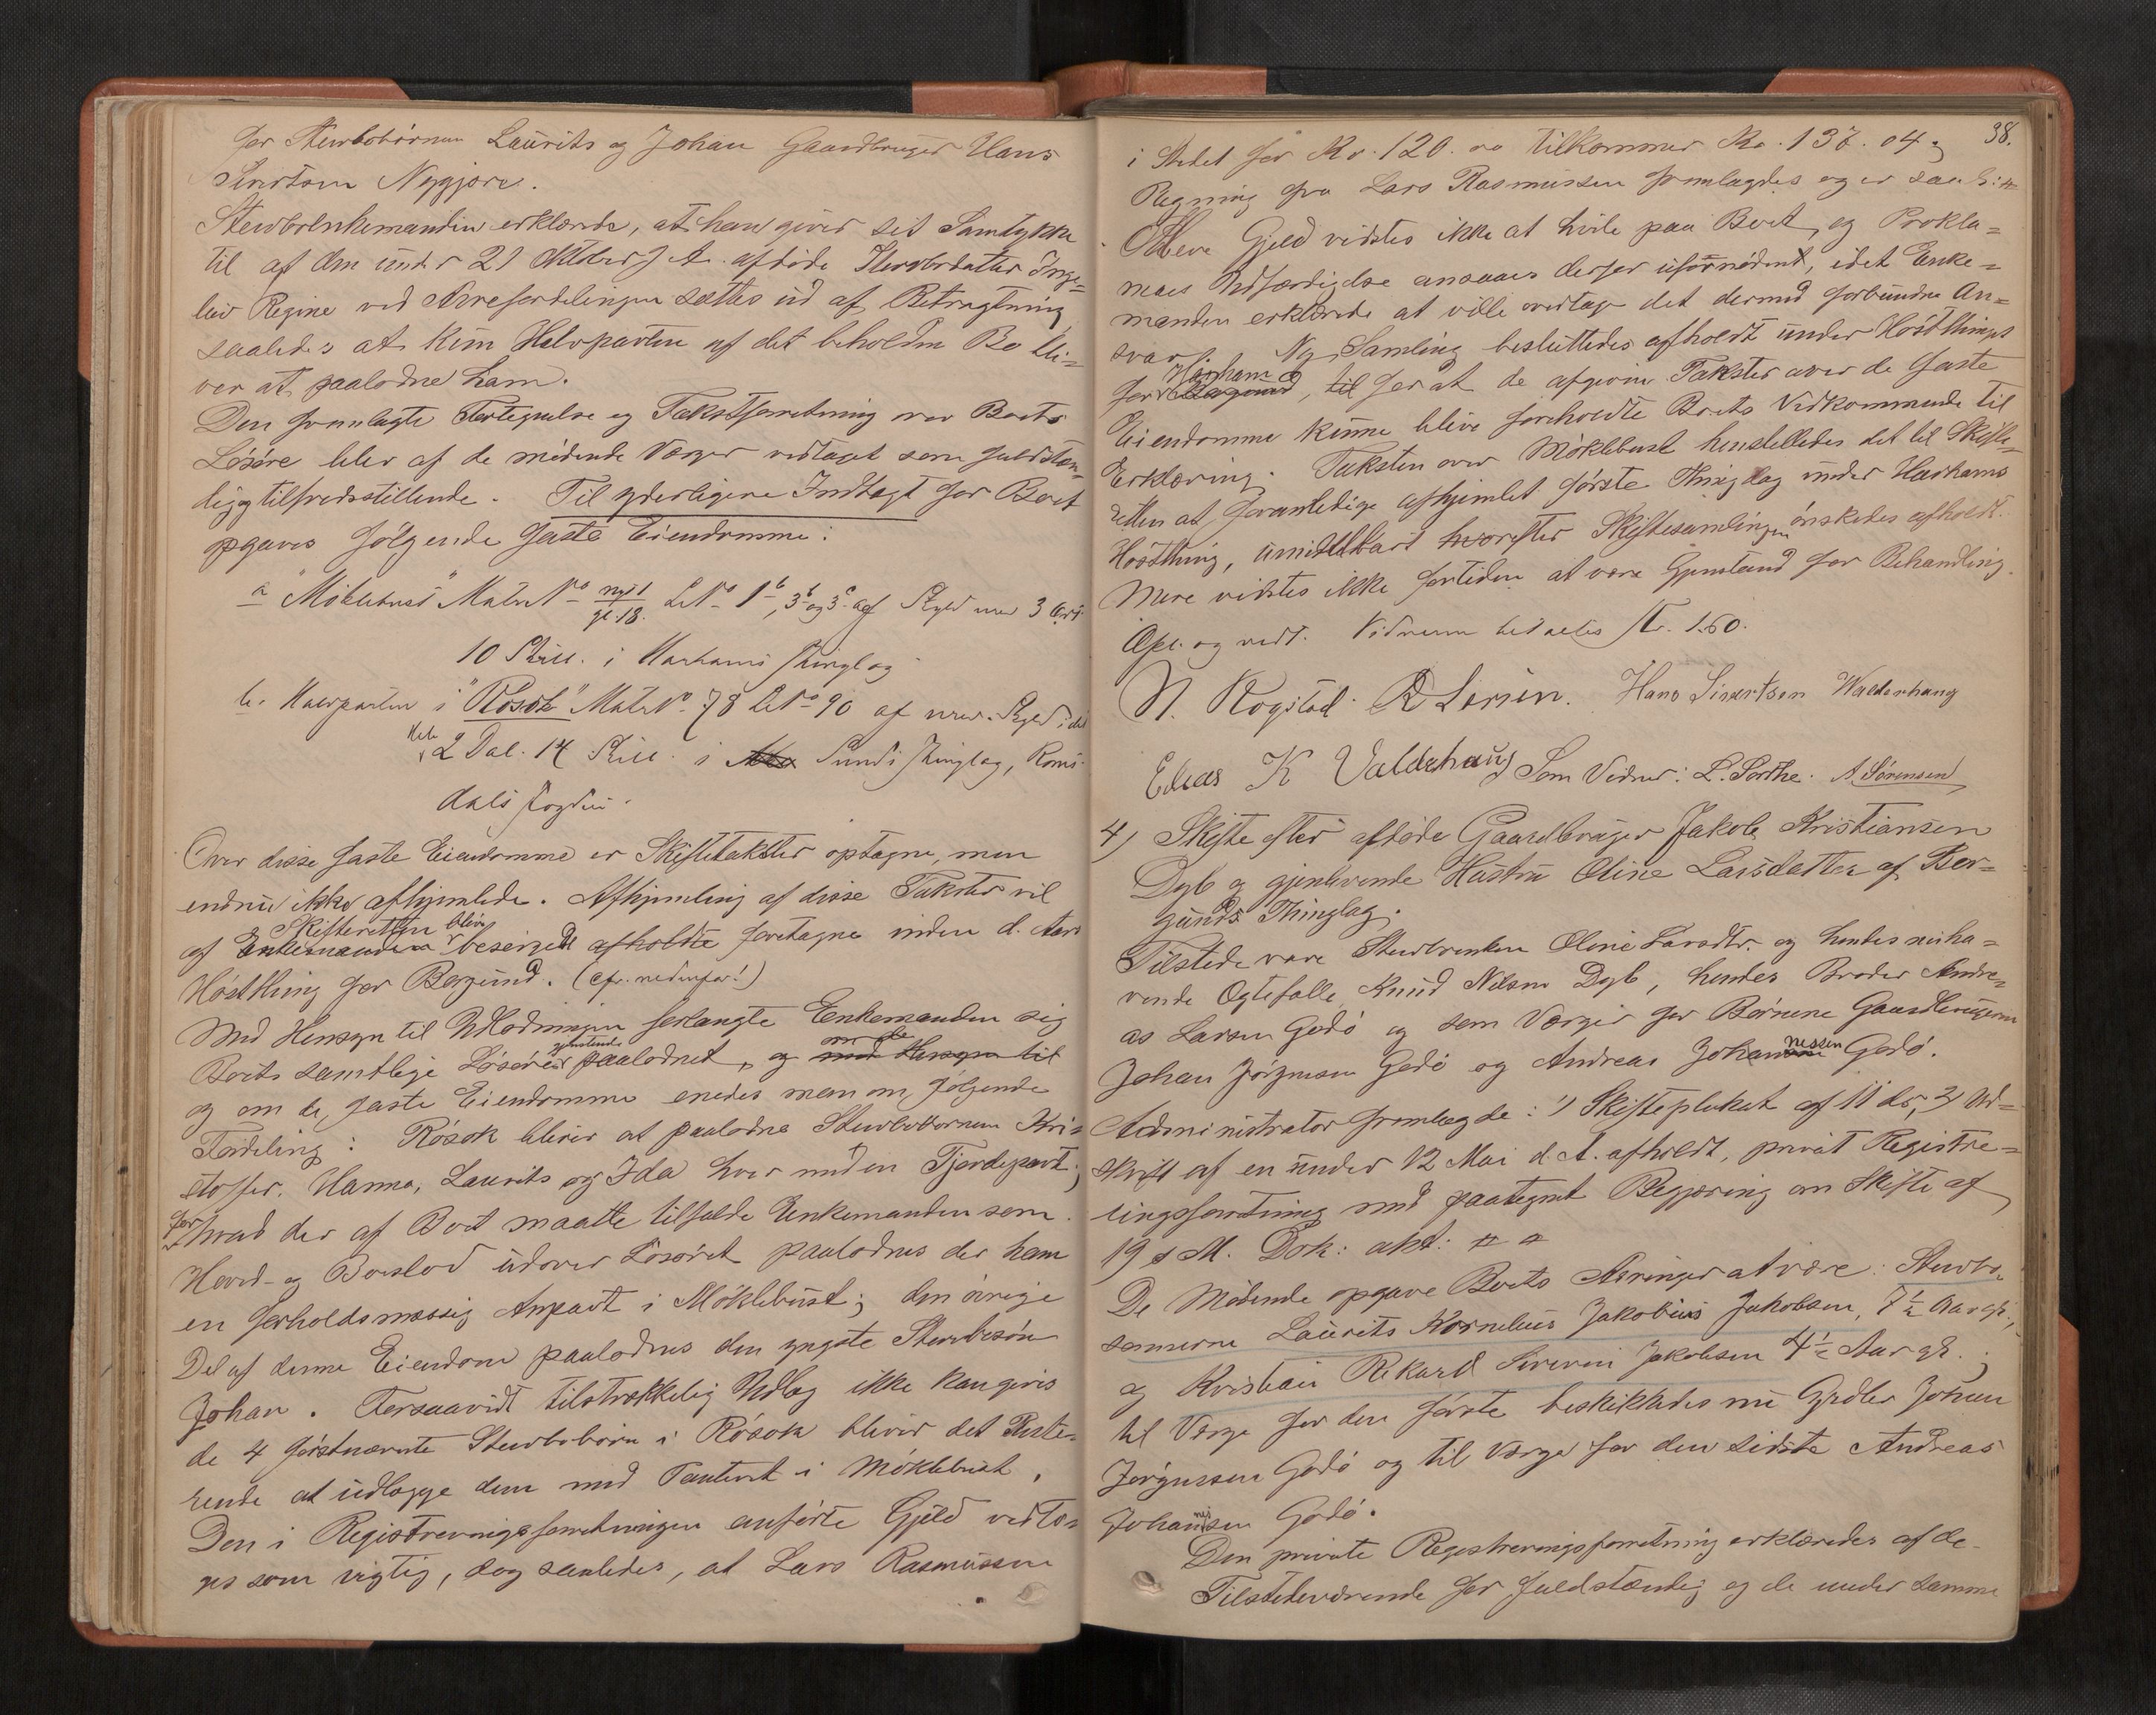 for Stervbobørnene Laurits og Johan Gaardbruger Hans
Sivertsen Nygjøre.
Stervboenkemanden erklærede, at han giver sit Samtykke
til at den under 21 Oktober f. A. afdøde Stervbodatter Inge-
lev Regine ved Arvefordelingen sættes ud af Betragtning
saaledes at kun Halvparten af det beholdne Bo bli-
ver at paalodne ham.
Den fremlagte Fortegnelse og Takstforretning over Boets
Løsøre blev af de mødende Værger vedtaget som fuldstæn-
dig og tilfredsstillende. Til yderligere Indtægt for Boet
opgaves følgende faste Eiendomme:
a "Møklebust" Matr No ny 1 / gl. 18. L No 1b, 3b og 3c af Skyld 3 Ort
10 Skill. i Harhams Thinglag
b. Halvparten i "Røsok" Matr No 78 L No 90 af Skyld i det
Hele 2 Dal. 14 Skill. i Sunds Thinglag, Roms-
dals Fogderi.
Over disse faste Eiendomme er Skiftetakster optagne, men
endnu ikke afhjemlede. Afhjemling af disse Takster vil
af Enkemanden Skifteretten blive besørget afholdte foretagne inden d. Aars
Høstthing for Borgund. (cfr. nedenfor!)
Med Hensyn til Udlodningen forlangte Enkemanden sig
Boets samtlige Løsøregjenstande paalodnet, og med Hensyn til
og om de faste Eiendomme enedes man om følgende
Fordeling: Røsok bliver at paalodne Stervbobørnene Kri-
stofer, Hanna, Laurits og Ida hver med en Fjerdepart;
for hvad der af Boet maatte tilfalde Enkemanden som
Hoved- og Boeslod udover Løsøret paalodnes der ham
en forholdsmæssig Anpart i Møklebust; den øvrige
Del af denne Eiendom paalodnes den yngste Stervbosøn
Johan. Forsaavidt tilstrækkelig Udlæg ikke kan gives
de 4 førstnævnte Stervbobørn i Røsok bliver det Reste-
rende at udlægge dem med Panteret i Møklebust.
Den i Registreringsforretningen anførte Gjæld vedto-
ges som rigtig, dog saaledes, at Lars Rasmussen
38.
i Stedet for Kr. 120.00 tilkommer Kr. 137.04;
Regning fra Lars Rasmussen fremlagdes og er saal:
Videre Gjæld vidstes ikke at hvile paa Boet, og Prokla-
maes Udfærdigelse ansaaes derfor ufornødent, idet Enke-
manden erklærede at ville overtage det dermed forbundne An-
svar. Ny Samling besluttedes afholdt under Høstthinget
for Borgund Harham, til for at de afgivne Takster over de faste
Eiendomme kunne blive foreholdte Boets Vedkommende til
Erklæring. Taksten over Møklebust henstilledes det til Skifte-
retten at foranledige afhjemlet første Thingdag under Harhams
Høstthing, umiddelbart hvorefter Skiftesamlingen ønskedes afholdt.
Mere vidstes ikke fortiden at være Gjenstand for Behandling.
Opl. og vedt. Vidnerne betaltes Kr. 1.60.
N. Rogstad. R Larsen. Hans Sivertsen Walderhaug
Elias K Valdehaug Som Vidner: L. Sorthe. A. Sørensen
4) Skifte efter afdøde Gaardbruger Jakob Kristiansen
Dyb og gjenlevende Hustru Oline Larsdatter af Bor-
gunds Thinglag.
Tilstede vare Stervboenken Oline Larsdtr. og hendes nuha-
vende Ægtefælle Knud Nilsen Dyb, hendes Broder Andre-
as Larsen Godø og som Værger for Børnene Gaardbrugerne
Johan Jørgensen Godø og Andreas Johannessen Godø.
Administrator fremlagde: 1) Skifteplakat af 11 ds, 2) Ud-
skrift af en under 12 Mai d. A. afholdt, privat Registre-
ringsforretning med paategnet Begjæring om Skifte af
19 s. M. Dok: akt:
De Mødende opgave Boets Arvinger at være: Stervbo-
sønnerne Laurits Kornelius Jakobius Jakobsen, 7½ Aar gl.,
og Kristian Rikard Severin Jakobsen 4½ Aar gl.;
til Værge for den første beskikkedes nu Grdbr Johan
Jørgensen Godø og til Værge for den sidste Andreas
Johannesen Godø.
Den private Registreringsforretning erklæredes af de
Tilstedeværende for fuldstændig og de under samme